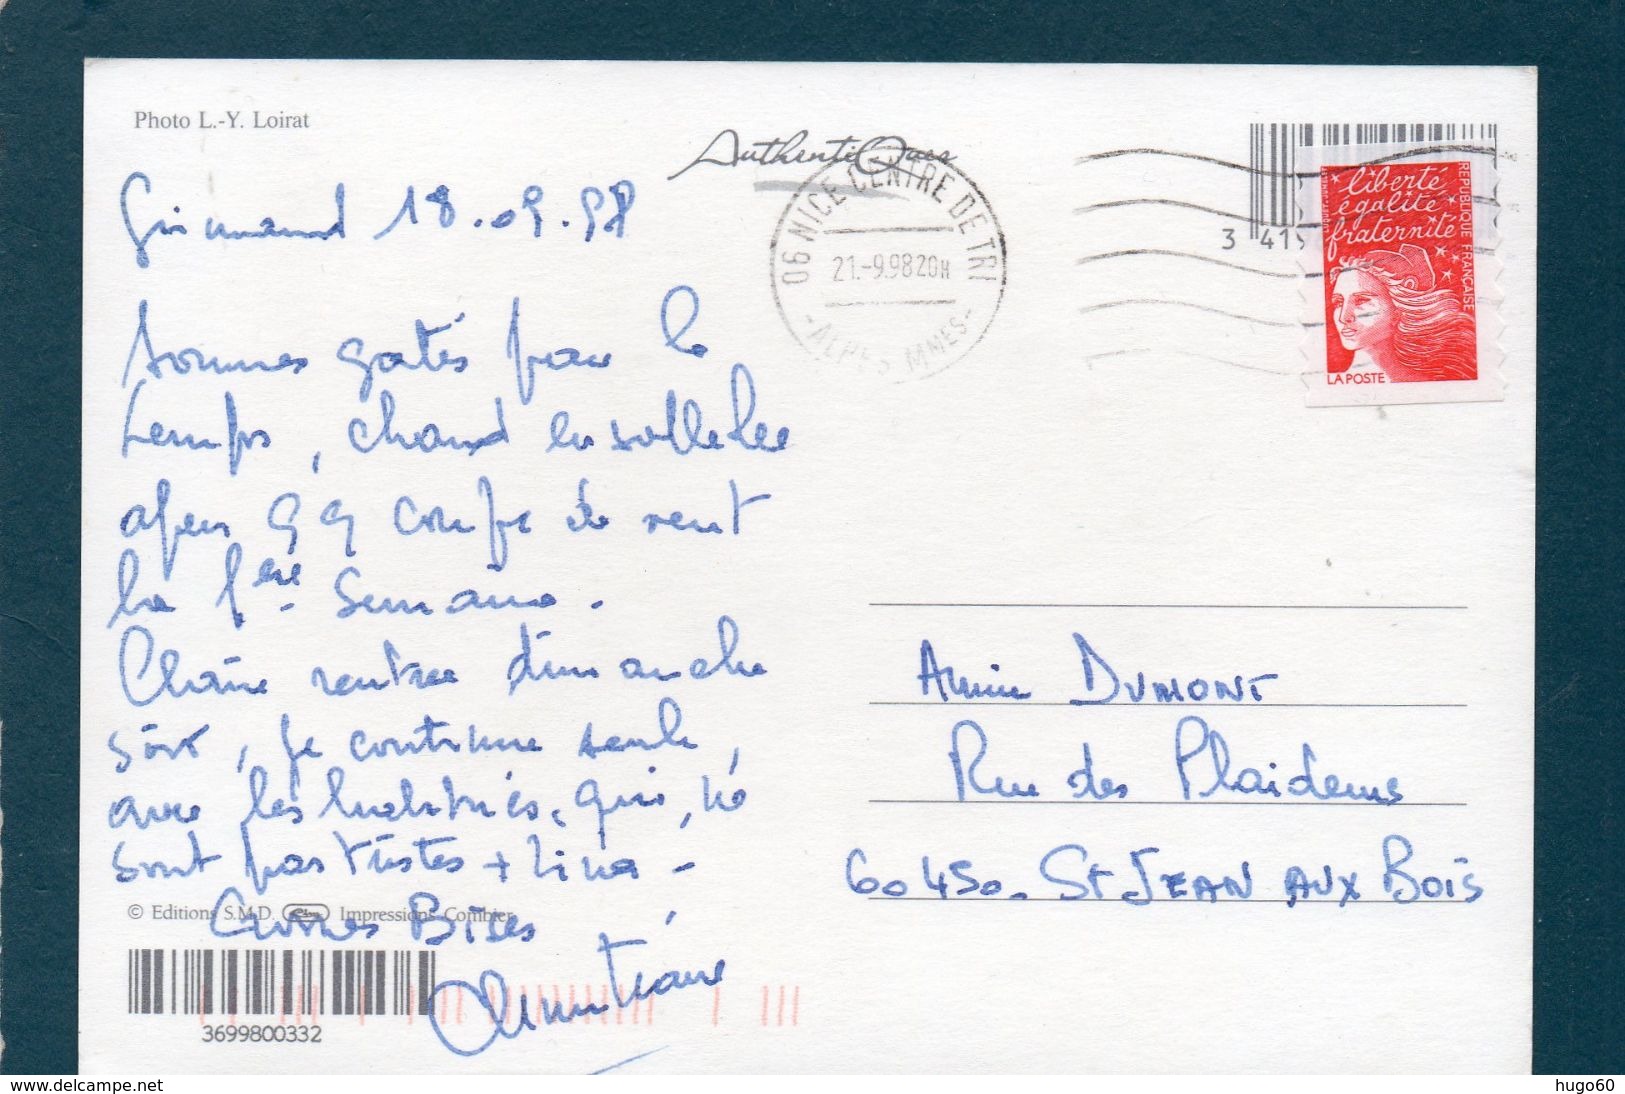 Photo L.-Y. Loirat
AuthentiQues
Grimaud 18.09.98
06 NICE CENTRE DE TRI
21.-9.98 20H
-ALPES MMES-
3 419
liberté
égalité
fraternité
REPUBLIQUE FRANÇAISE
LA POSTE
Sommes gatés par le
temps, chaud ensoleillé
apeu qq coups de vent
la 1ère Semaine.
rentrée dimanche
soir, je continue seule,
avec les qui, ne
sont pas tristes + Lina -
Grosses Bises
Christiane
Annie DUMONT
Rue des Plaideurs
60450 - St JEAN AUX BOIS
© Editions S.M.D. Impressions Combier
3699800332
www.delcampe.net
hugo60